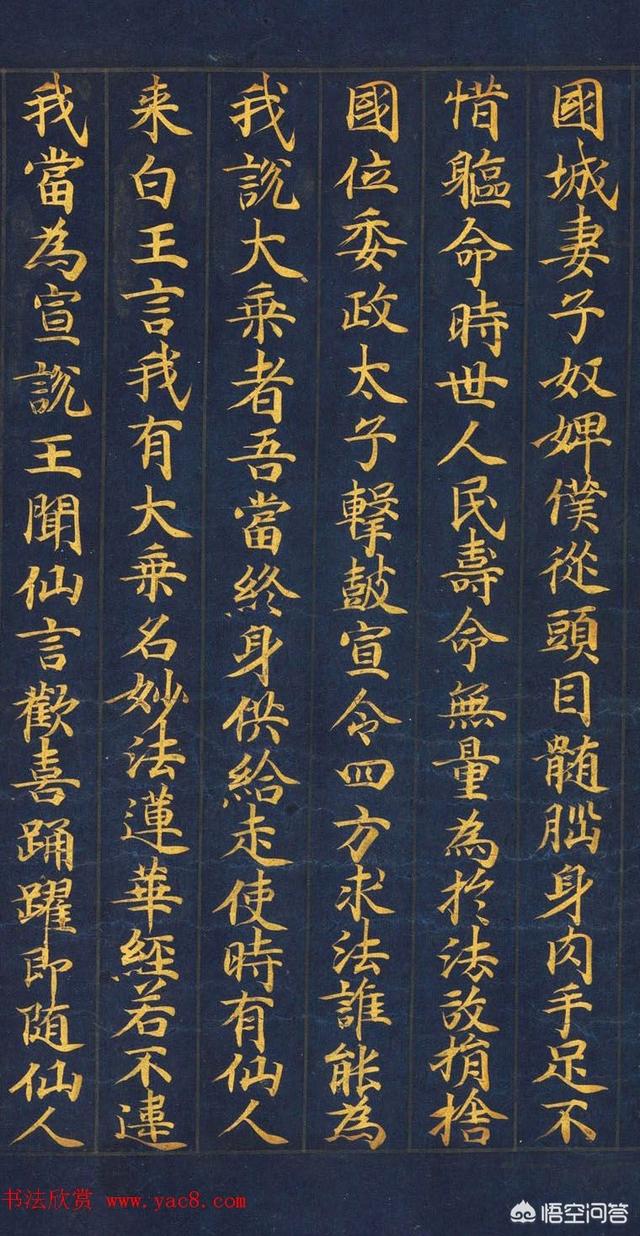 國城妻子奴婢僕從頭目髄𦛁身肉手足不
惜軀命時世人民壽命無量為扵法故捐捨
國位委政太子擊鼓宣令四方求法誰能為
我說大乘者吾當終身供給走使時有仙人
来白王言我有大乘名妙法蓮華經若不違
我當為宣說王聞仙言歡喜踊躍即随仙人
书法欣赏 www.yac8.com
悟空问答